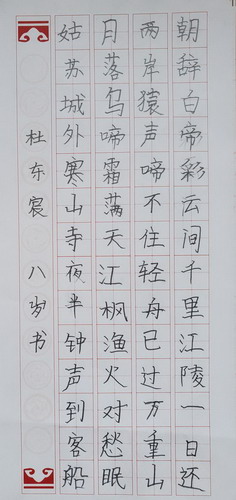 朝辞白帝彩云间千里江陵一日还
两岸猿声啼不住轻舟已过万重山
月落乌啼霜满天江枫渔火对愁眠
姑苏城外寒山寺夜半钟声到客船
杜东宸 八岁书